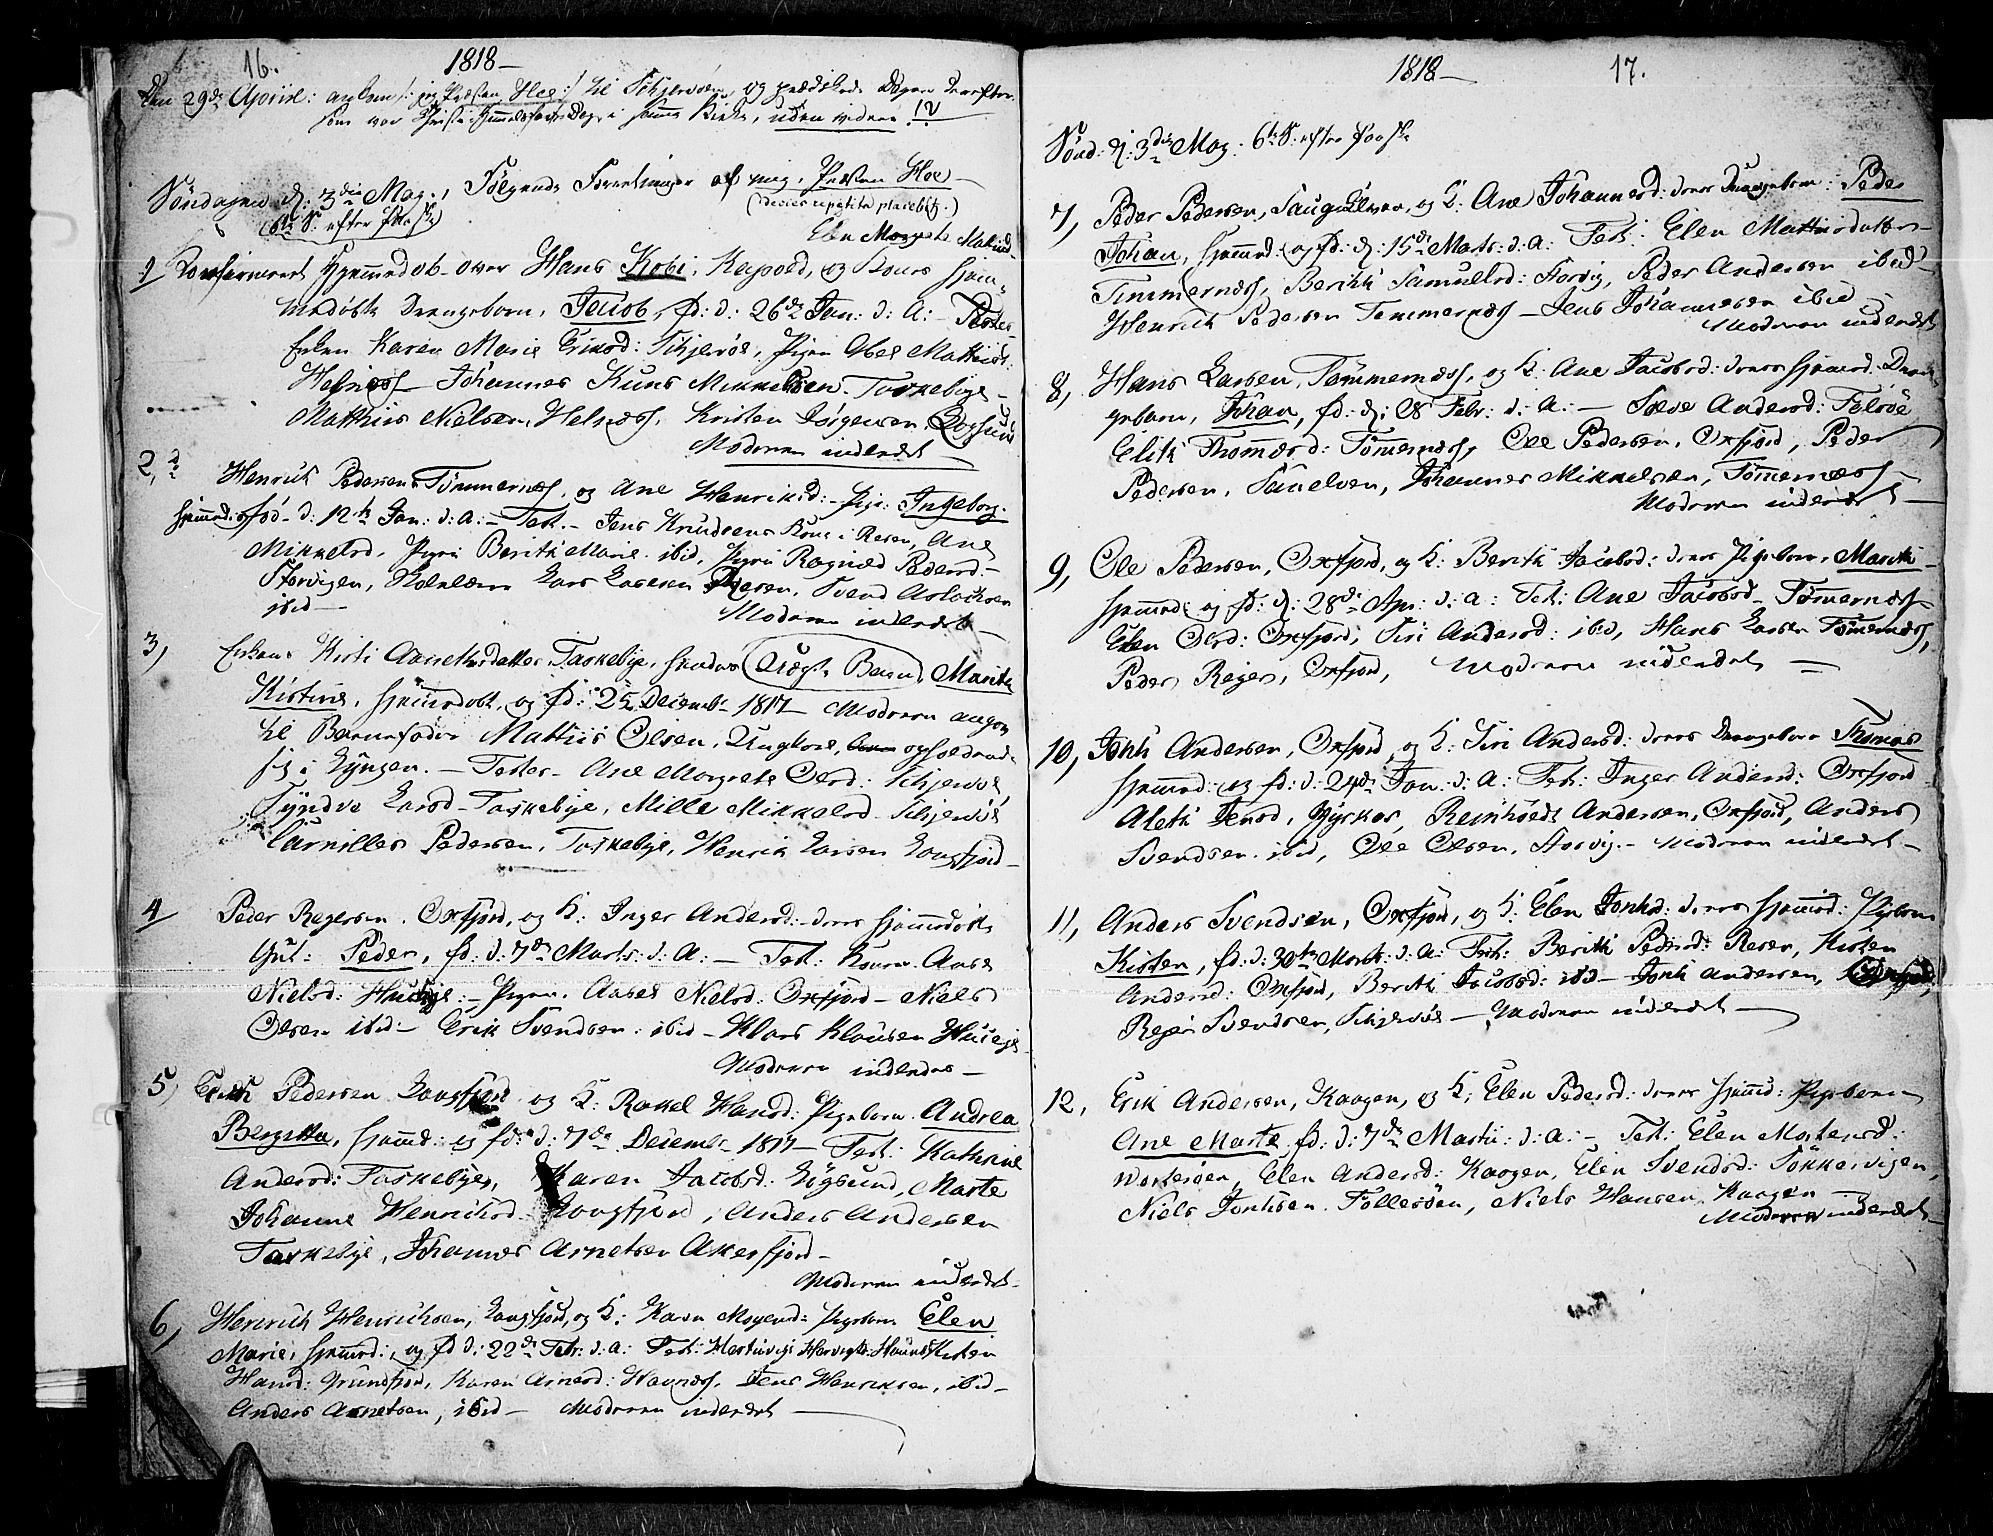 16.
1818 —
Den 29de Apriil: ankom /: jeg Præsten Hee :/ til Schjervøen, og prædikede Dagen derefter
som var Christi Himmelfarts Dag, i samme Kirke, uden videre !?
Søndagen d: 3die Maj, Følgende Forretninger af mig, Præsten Hee —
(6te S. efter Paaske) (decies repetita placebit.)
Elen Margrete
1 Confirmeret Hjemmedøb. over Hans Kobi, og Kones hjem-
medøbte Drengebarn, Jacob, fd: d: 26de Jan: d: A: —
Enken Karen Marie Eriksd: Schjervøe, Pigen Abel Mathiisd:
Helnæss — Johannes Mikkelsen Taskebye —
Mathiis Nielsen, Helnæss, Kristen Jørgensen,
Moderen indledet —
2, Henrich Pedersen Tømmernæss, og Ane Henriksd: — Pige: Ingeborg.
hjemmed: fød d: 12te Jan: d: A: — Test. — Jens Knudsens Kone i Reisen, Ane
Mikkelsd. Pigen Berith Marie ibid, Pigen Ragnild Pedersd: —
Storvigen, Lars Larsen Reisen, Svend Aslaksen
ibid — Moderen indledet —
3, Enkens Kirsti Arnetsdatter Taskebye, hendes Uægte Barn, Marith
Kirstine, hjemmedøbt, og fd: 25 Decemb: 1817 — Moderen angav
til Barnefader Mathiis Olsen, Ungkarl, opholdende
sig i Lyngen. — Testes — Ane Margrete Olsd: Schjervøe,
Synøve Larsd. Taskebye, Mille Mikkelsd. Schjervøe
Carnilles Pedersen, Taskebye, Henrik Larsen Laugfjord —
4 Peder Regersen. Oxfjord, og H: Inger Andersd: deres hjemmedøbte
Gut: Peder, fd: d: 7de Marts d: A: — Test: Konen Aasel
Nielsd: — Pigen Aasel Nielsd: Oxfjord — Niels
Olsen ibid: — Erik Svendsen ibid — Klaus Klausen
Moderen indledes —
5, Pedersen Laugfjord og H: Rakel Hansd: Pigebarn Andrea
Bergitta, hjemmd: og fd: d: 7de Decembr 1817 — Test: Kathrine
Andersd: Taskebye, Karen Jacobsd: Løgsund, Marte
Johanne Henriksd. Laugfjord, Anders Andersen
Taskebye, Johannes Arnetsen Akerfjord —
Moderen indledet —
6, Henrich Henrichsen, Laugfjord, og H: Karn Mogensd: Pigebarn Elen
Marie, hjemmd:, og fd d: 22de Febr: d: A: Test: Kisten
Hansd: Grundfjord, Karen Arnesd: Havnæss, Jens Henriksen, ibid —
Anders Arnetsen, ibid — Moderen indledet —
1818 — 17.
Sønd: d: 3die Maj: 6te S: efter Paaske
7, Peder Pedersen, og H: Ane Johannesd: deres Drengebarn: Peder
Johan, hjemmd: og fd: d: 15de Marts d: A: Test: Elen Mathiisdatter —
Tømmernæss, Berithe Samuelsd: Storvig, Peder Andersen ibid —
Henrich Pedersen Tømmernæss — Jens Johannesen ibid
Moderen indledet
8, Hans Larsen, Tømmernæss, og H: Ane Jacobsd: deres hjemmd: Dren-
gebarn, Johan, fd: d: 28 Febr: d: A: — Andersd:
Elith Thomæsd: Tømmernæss, Ole Pedersen, Oxfjord, Peder
Pedersen, Johannes Mikkelsen, Tømmernæss
Moderen indledet —
9, Ole Pedersen, Oxfjord, og H: Berith Jacobsd: deres Pigebarn, Marith —
hjemmd: og fd: d: 28de Apr: d: A: Test: Ane Jacobsd — Tømmernæss —
Elen Olsd: Oxfjord, Siri Andersd: ibid, Hans Larsen Tømmernæss,
Peder Reger, Oxfjord, Moderen indledet —
10, Jonh Andersen, Oxfjord, og H: Siri Andersd: deres Drengebarn Thomas
hjemmd: og fd: d: 24de Jan: d: A: Test: Inger Andersd: Oxfjord —
Aleth Jensd, Reinholdt Andersen, Oxfjord, Anders
Svendsen ibid, Ole Olsen, Storvig. — Moderen indledet —
11, Anders Svendsen, Oxfjord, og H: Elen Jonhsd: deres hjemmd: Pigebarn
Kisten, fd: d: 30te Marts d: A: Test: Berith Pedersd: Reisen, Kisten
Andersd: Oxfjord, Berith Jacobsd: ibid — Jonh Andersen,
Reger Svendsen, Schjervøe — Moderen indledet —
12, Erik Andersen, Kaagen, og H: Elen Pedersd: deres hjemmd: Pigebarn
Ane Marte fd: d: 7de Martii d: A: — Test: Elen Mortensd:
Elen Andersd: Kaagen, Elen Svendsd:
Niels Jonhsen Follesøen, Niels Hansen Kaagen —
Moderen indledet —